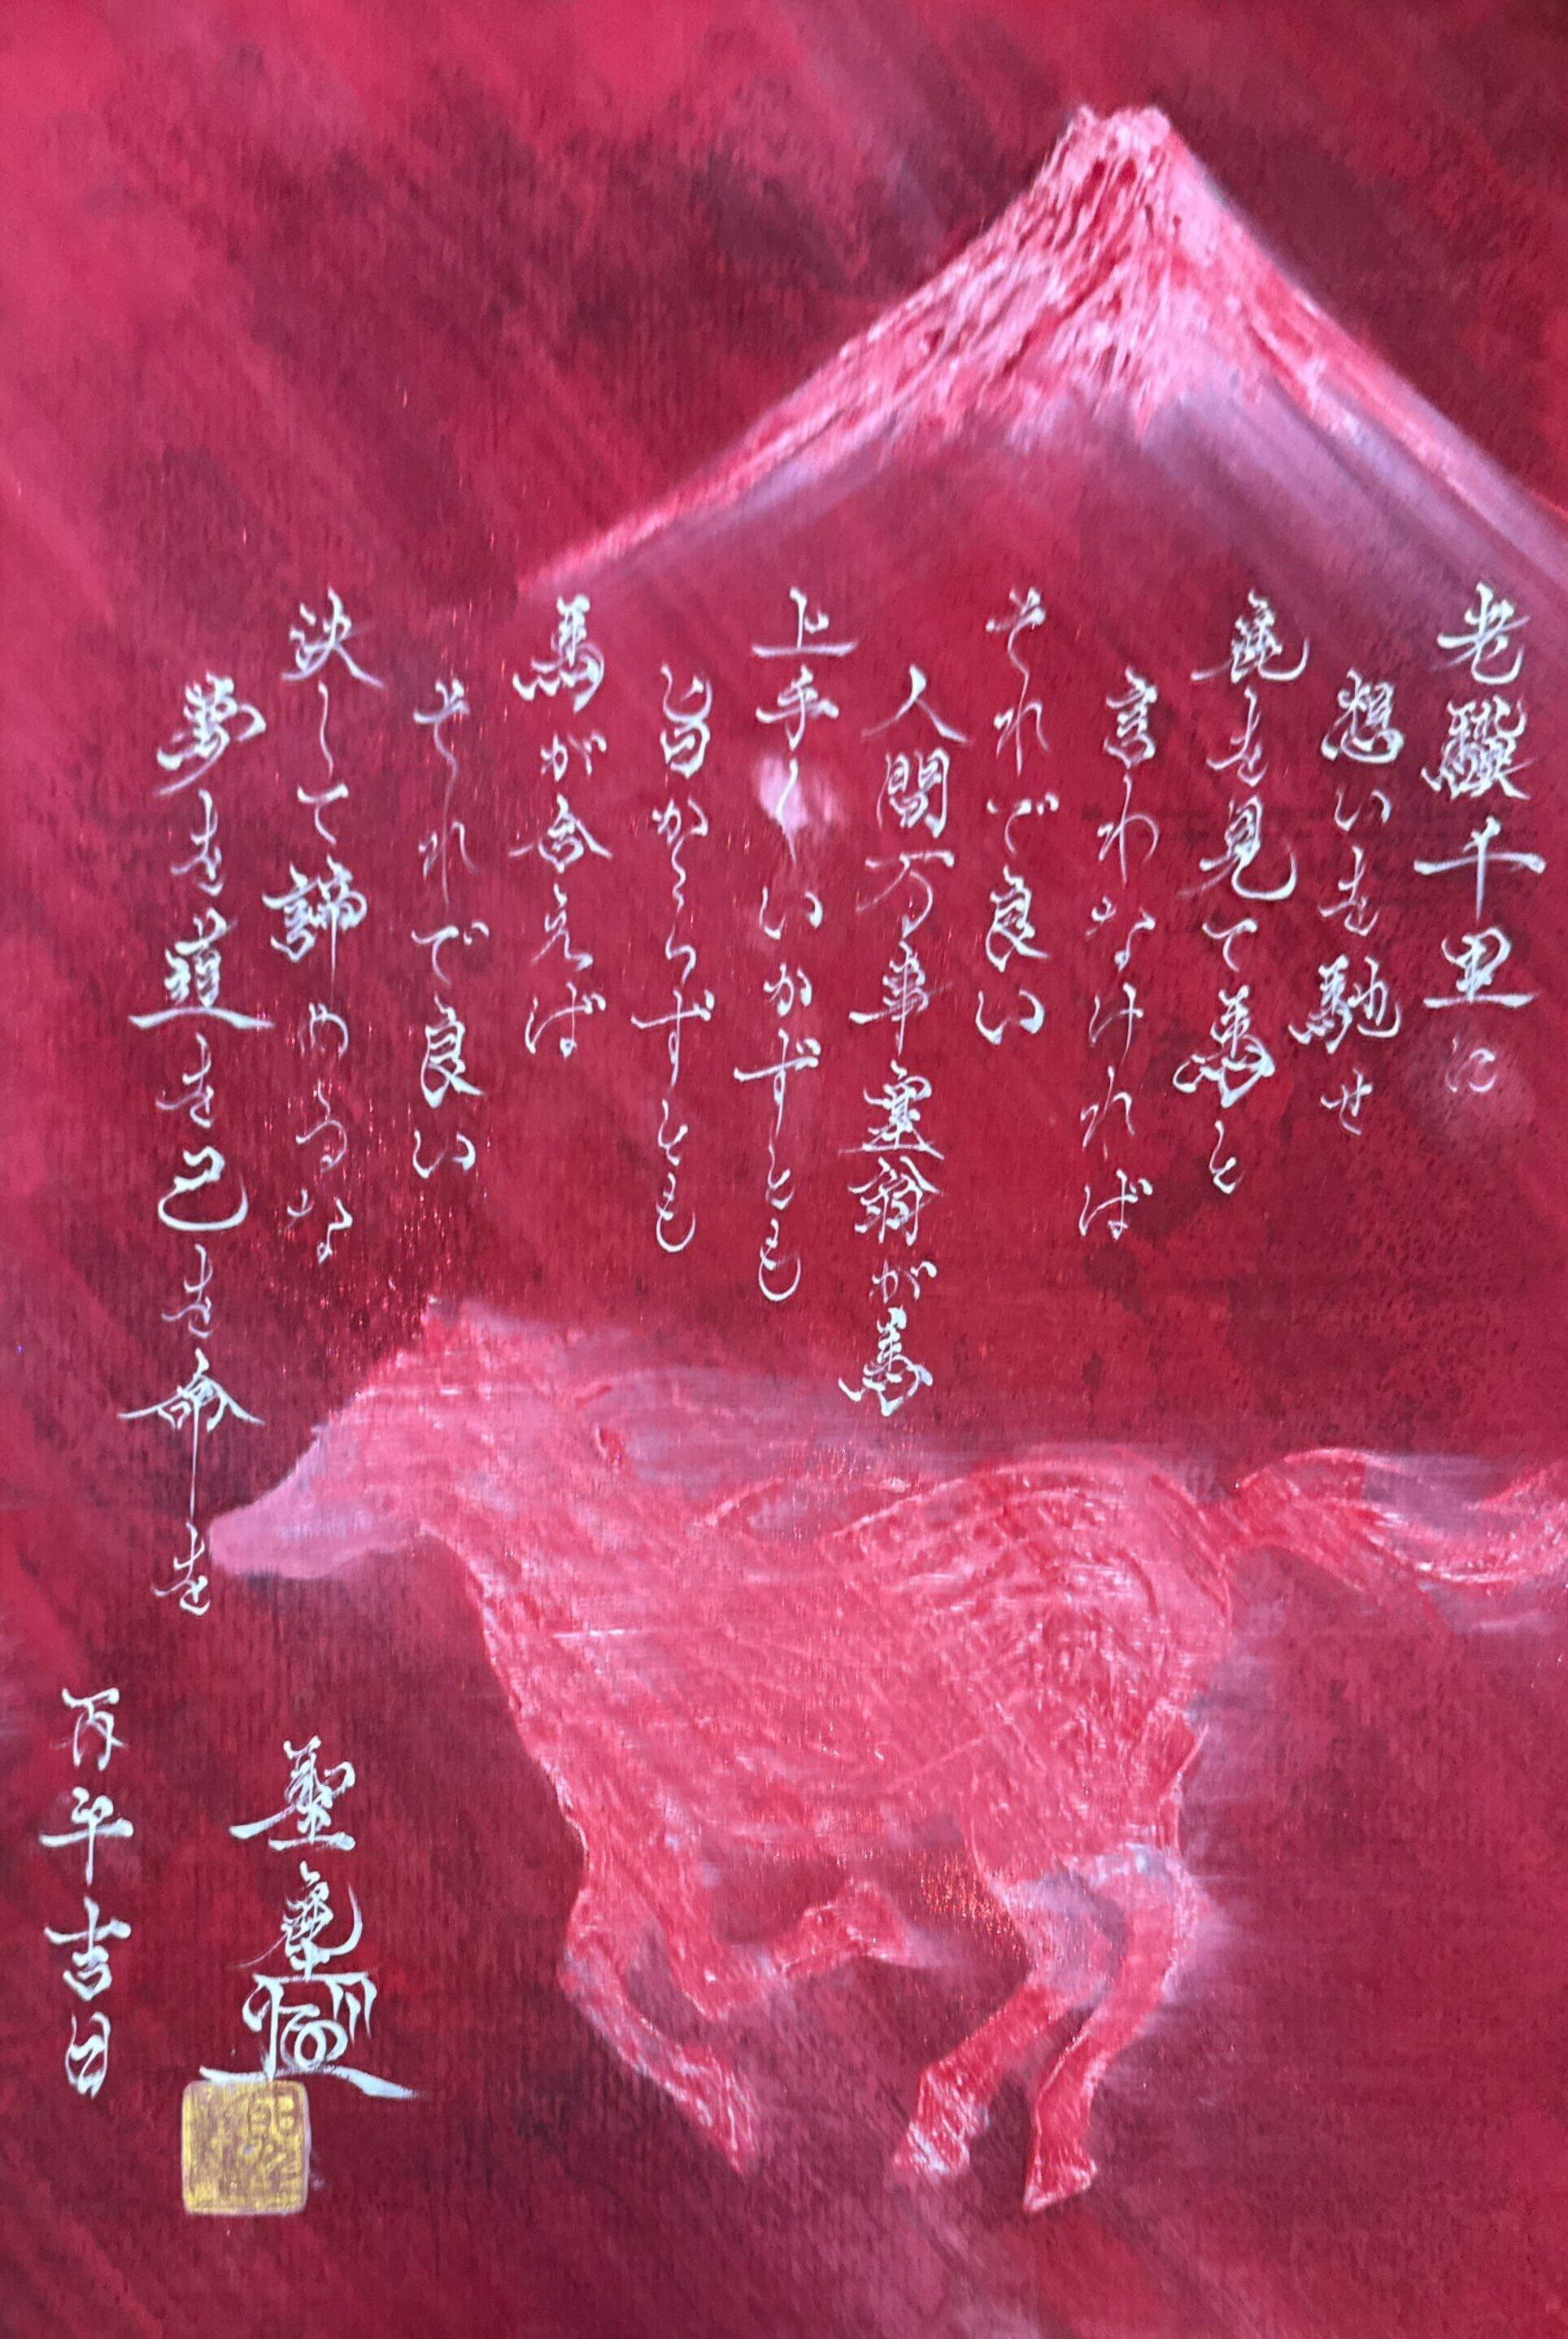 老驥千里に
想いを馳せ
鹿を見て馬と
言わなければ
それで良い
人間万事塞翁が馬
上手くいかずとも
旨からずとも
馬が合えば
それで良い
決して諦めるな
夢を道を己を命を
丙午吉日